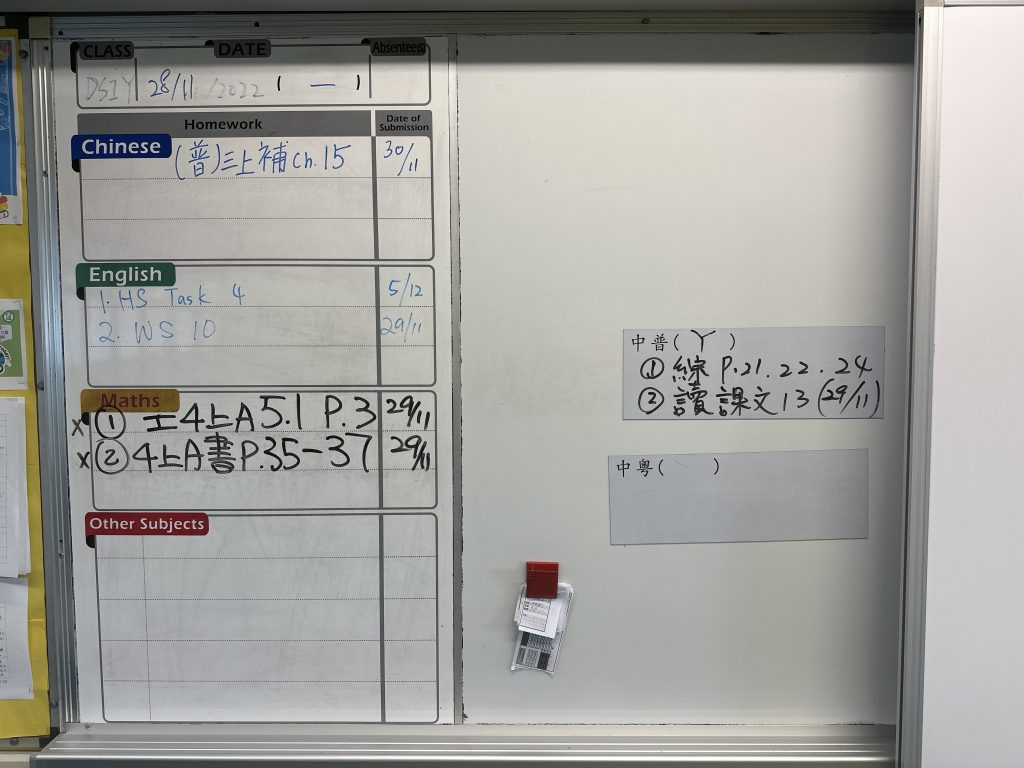 CLASS DATE Absentees
28/11 /2022 ( 一 )
Homework Date of Submission
Chinese
(普)三上補 Ch.15 30/11
English
1. HS Task 4 5/12
2. WS 10 29/11
Maths
x ① 工4上A5.1 P.3 29/11
x ② 4上A書P.35-37 29/11
Other Subjects
中普(丫)
① 綜 P.21.22.24
② 讀課文13 (29/11)
中粵( )